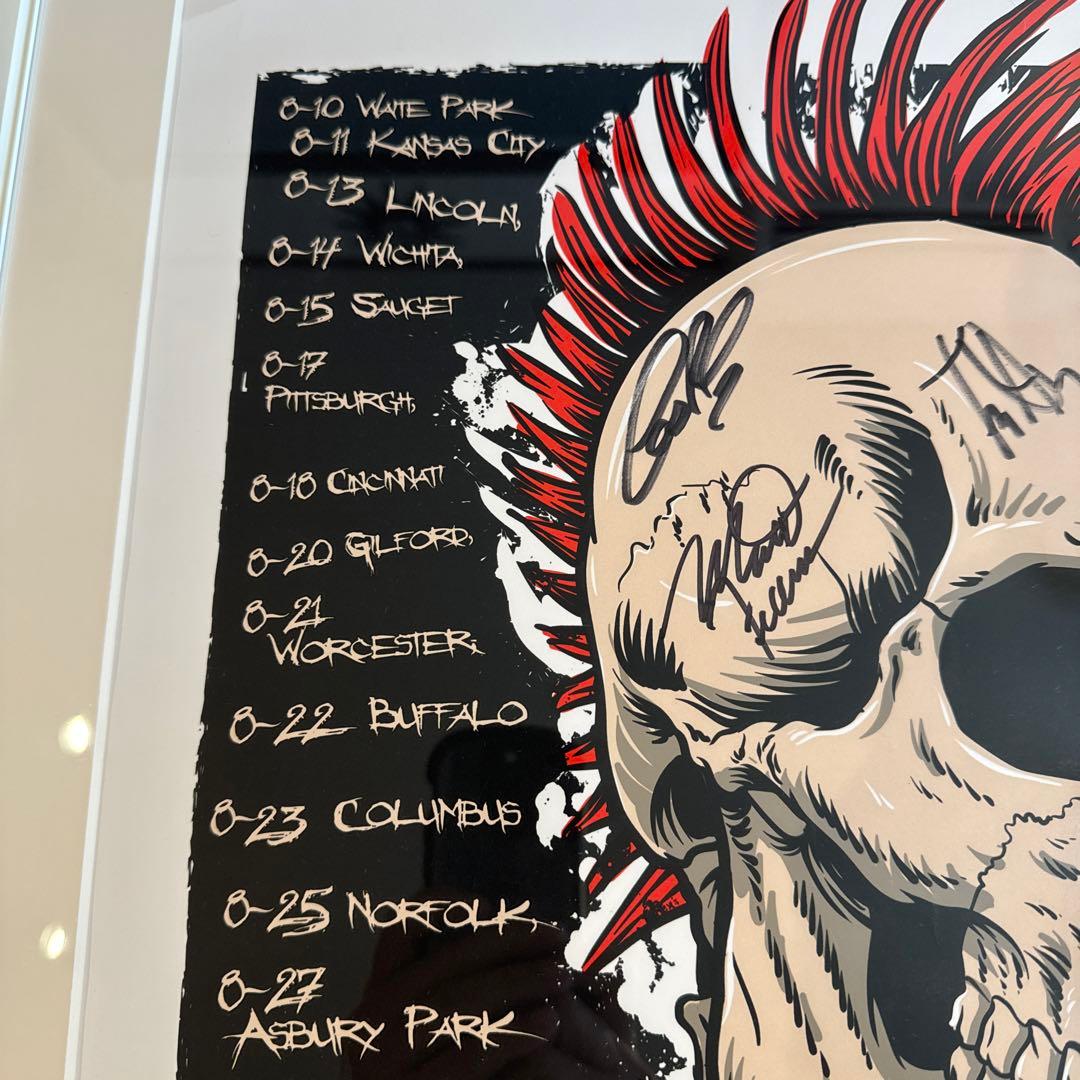 8-10 Waite Park
8-11 Kansas City
8-13 Lincoln,
8-14 Wichita,
8-15 Sauget
8-17
Pittsburgh,
8-18 Cincinnati
8-20 Gilford,
8-21
Worcester,
8-22 Buffalo
8-23 Columbus
8-25 Norfolk,
8-27
Asbury Park